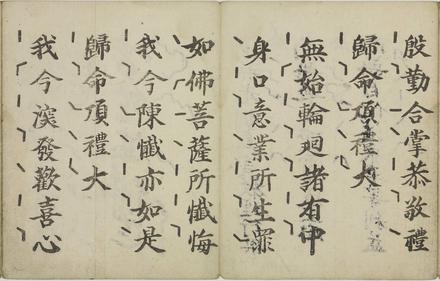 殷勤合掌恭敬禮
歸命頂禮大
無始輪廻諸有中
身口意業所生罪
如佛菩薩所懺悔
我今陳懺亦如是
歸命頂禮大
我今深發歡喜心